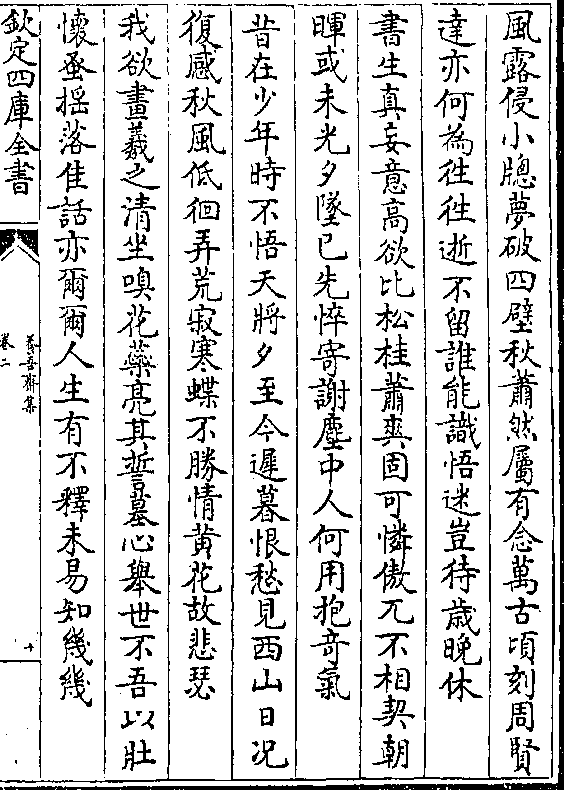 風露侵小牕夢破四壁秋蕭然屬有念萬古頃刻周賢
達亦何為往往逝不留誰能識悟迷豈待歲晚休
書生真妄意高欲比松桂蕭爽固可憐傲兀不相契朝
暉或未光夕墜已先悴寄謝塵中人何用抱竒氣
昔在少年時不悟天將夕至今遲暮恨愁見西山日况
復感秋風低徊弄荒寂寒蝶不勝情黄花故悲瑟
我欲畫羲之清坐嗅花藥亮其誓墓心舉世不吾以壯
懐蚤揺落佳話亦爾爾人生有不釋未易知幾幾
欽定四庫全書
養吾齋集
卷二
十